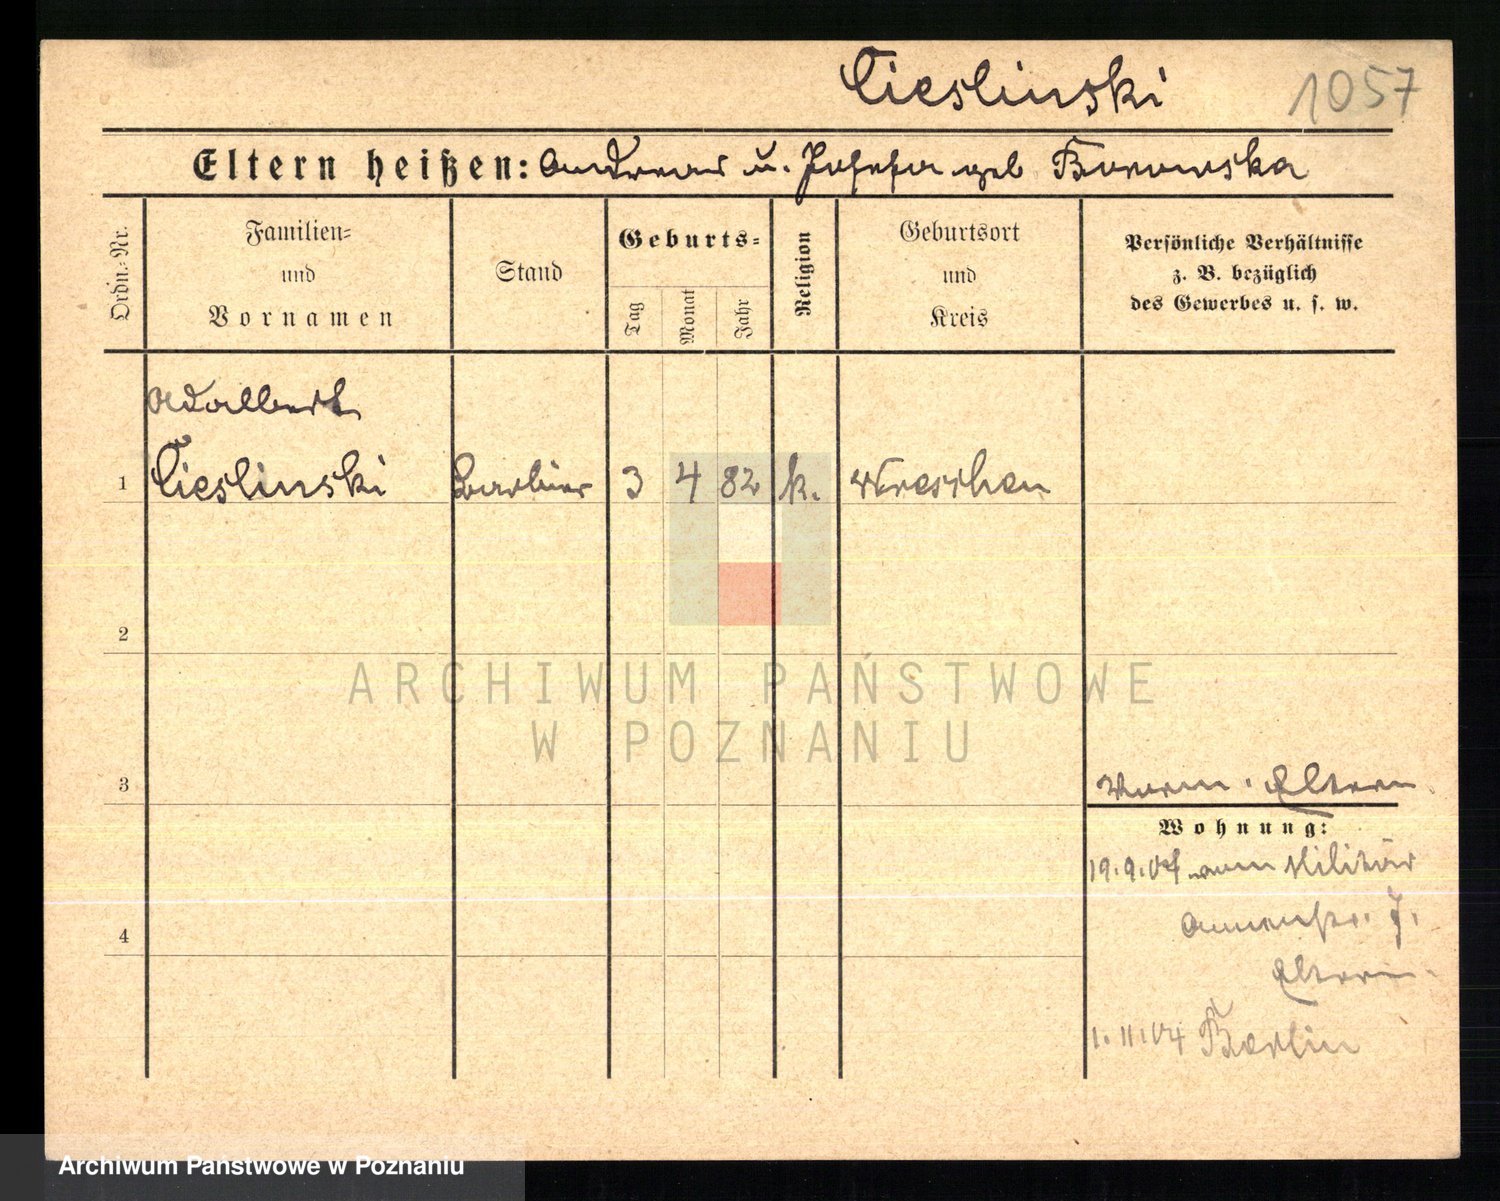 Cieslinski 1057
Eltern heißen: Andreas u. Josefa geb Borowska
Ordn.-Nr.
Familien-
und
Vornamen
Stand
Geburts-
Tag
Monat
Jahr
Religion
Geburtsort
und
Kreis
Persönliche Verhältnisse
z. B. bezüglich
des Gewerbes u. s. w.
Adalbert
1 Cieslinski Barbier 3 4 82 k. Wreschen
2
ARCHIWUM PAŃSTWOWE
W POZNANIU
3
Eltern
Wohnung:
19.9.04 vom Militär
Annenstr. 7.
Eltern
1.11.04 Berlin
4
Archiwum Państwowe w Poznaniu